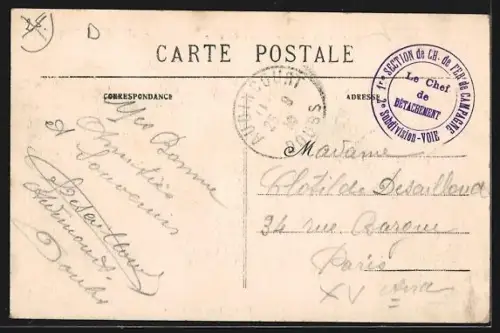 D
CARTE POSTALE
CORRESPONDANCE
ADRESSE
AUDINCOURT
DOUBS
1re SECTION de CH. de FER de CAMPAGNE
Le Chef
de
DÉTACHEMENT
2e Subdivision-VOIE
Mes Bonnes
Amitiés
et Souvenirs
Desailloud
Audincourt
Doubs
Madame
Clotilde Desailloud
34 rue Bargue
Paris
XV Arrd